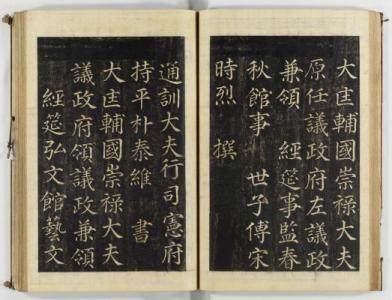 大匡輔國崇祿大夫
原任議政府左議政
兼領 經筵事監春
秋館事 世子傅宋
時烈 撰
通訓大夫行司憲府
持平朴泰維 書
大匡輔國崇祿大夫
議政府領議政兼領
經筵弘文館藝文